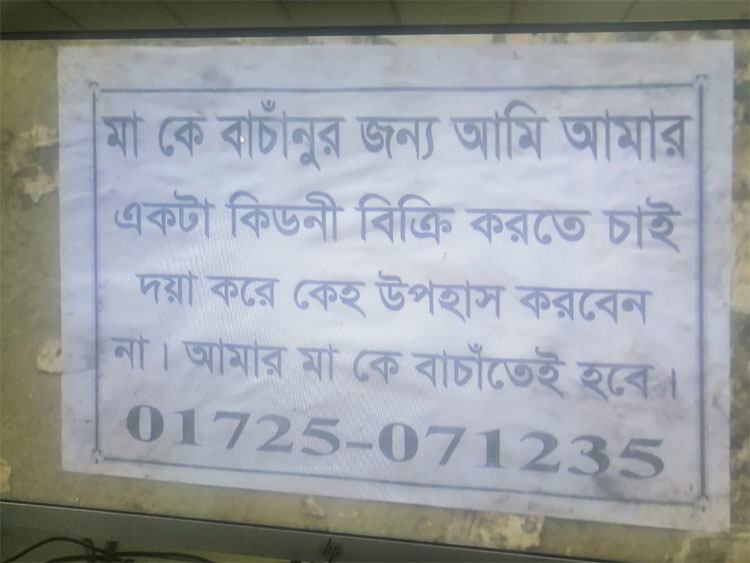 মা কে বাচাঁনুর জন্য আমি আমার
একটা কিডনী বিক্রি করতে চাই
দয়া করে কেহ উপহাস করবেন
না। আমার মা কে বাচাঁতেই হবে।
01725-071235
hp